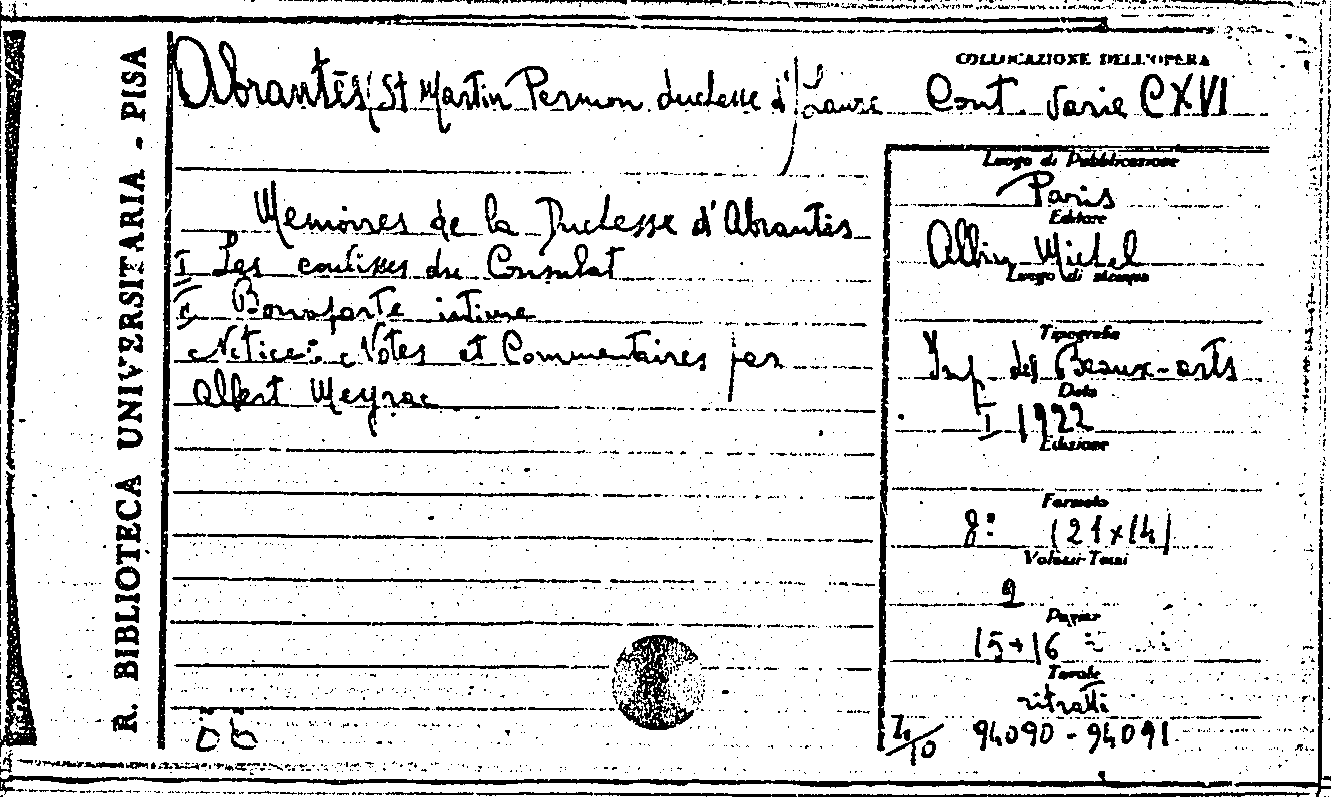 R. BIBLIOTECA UNIVERSITARIA - PISA
Abrantès (St Martin Permon duchesse d') Laure
COLLOCAZIONE DELL'OPERA
Cont. Varie CXVI
Memoires de la Duchesse d'Abrantès
I Les coulisses du Consulat
II Bonaparte intime
Notice, Notes et Commentaires par
Albert Meyrac
Luogo di Pubblicazione
Paris
Editore
Albin Michel
Luogo di stampa
Tipografia
Imp. des Beaux-arts
Data
I 1922
Edizione
Formato
8º (21x14)
Volumi-Tomi
2
Pagine
15+16
Tavole
ritratti
94090 - 94091